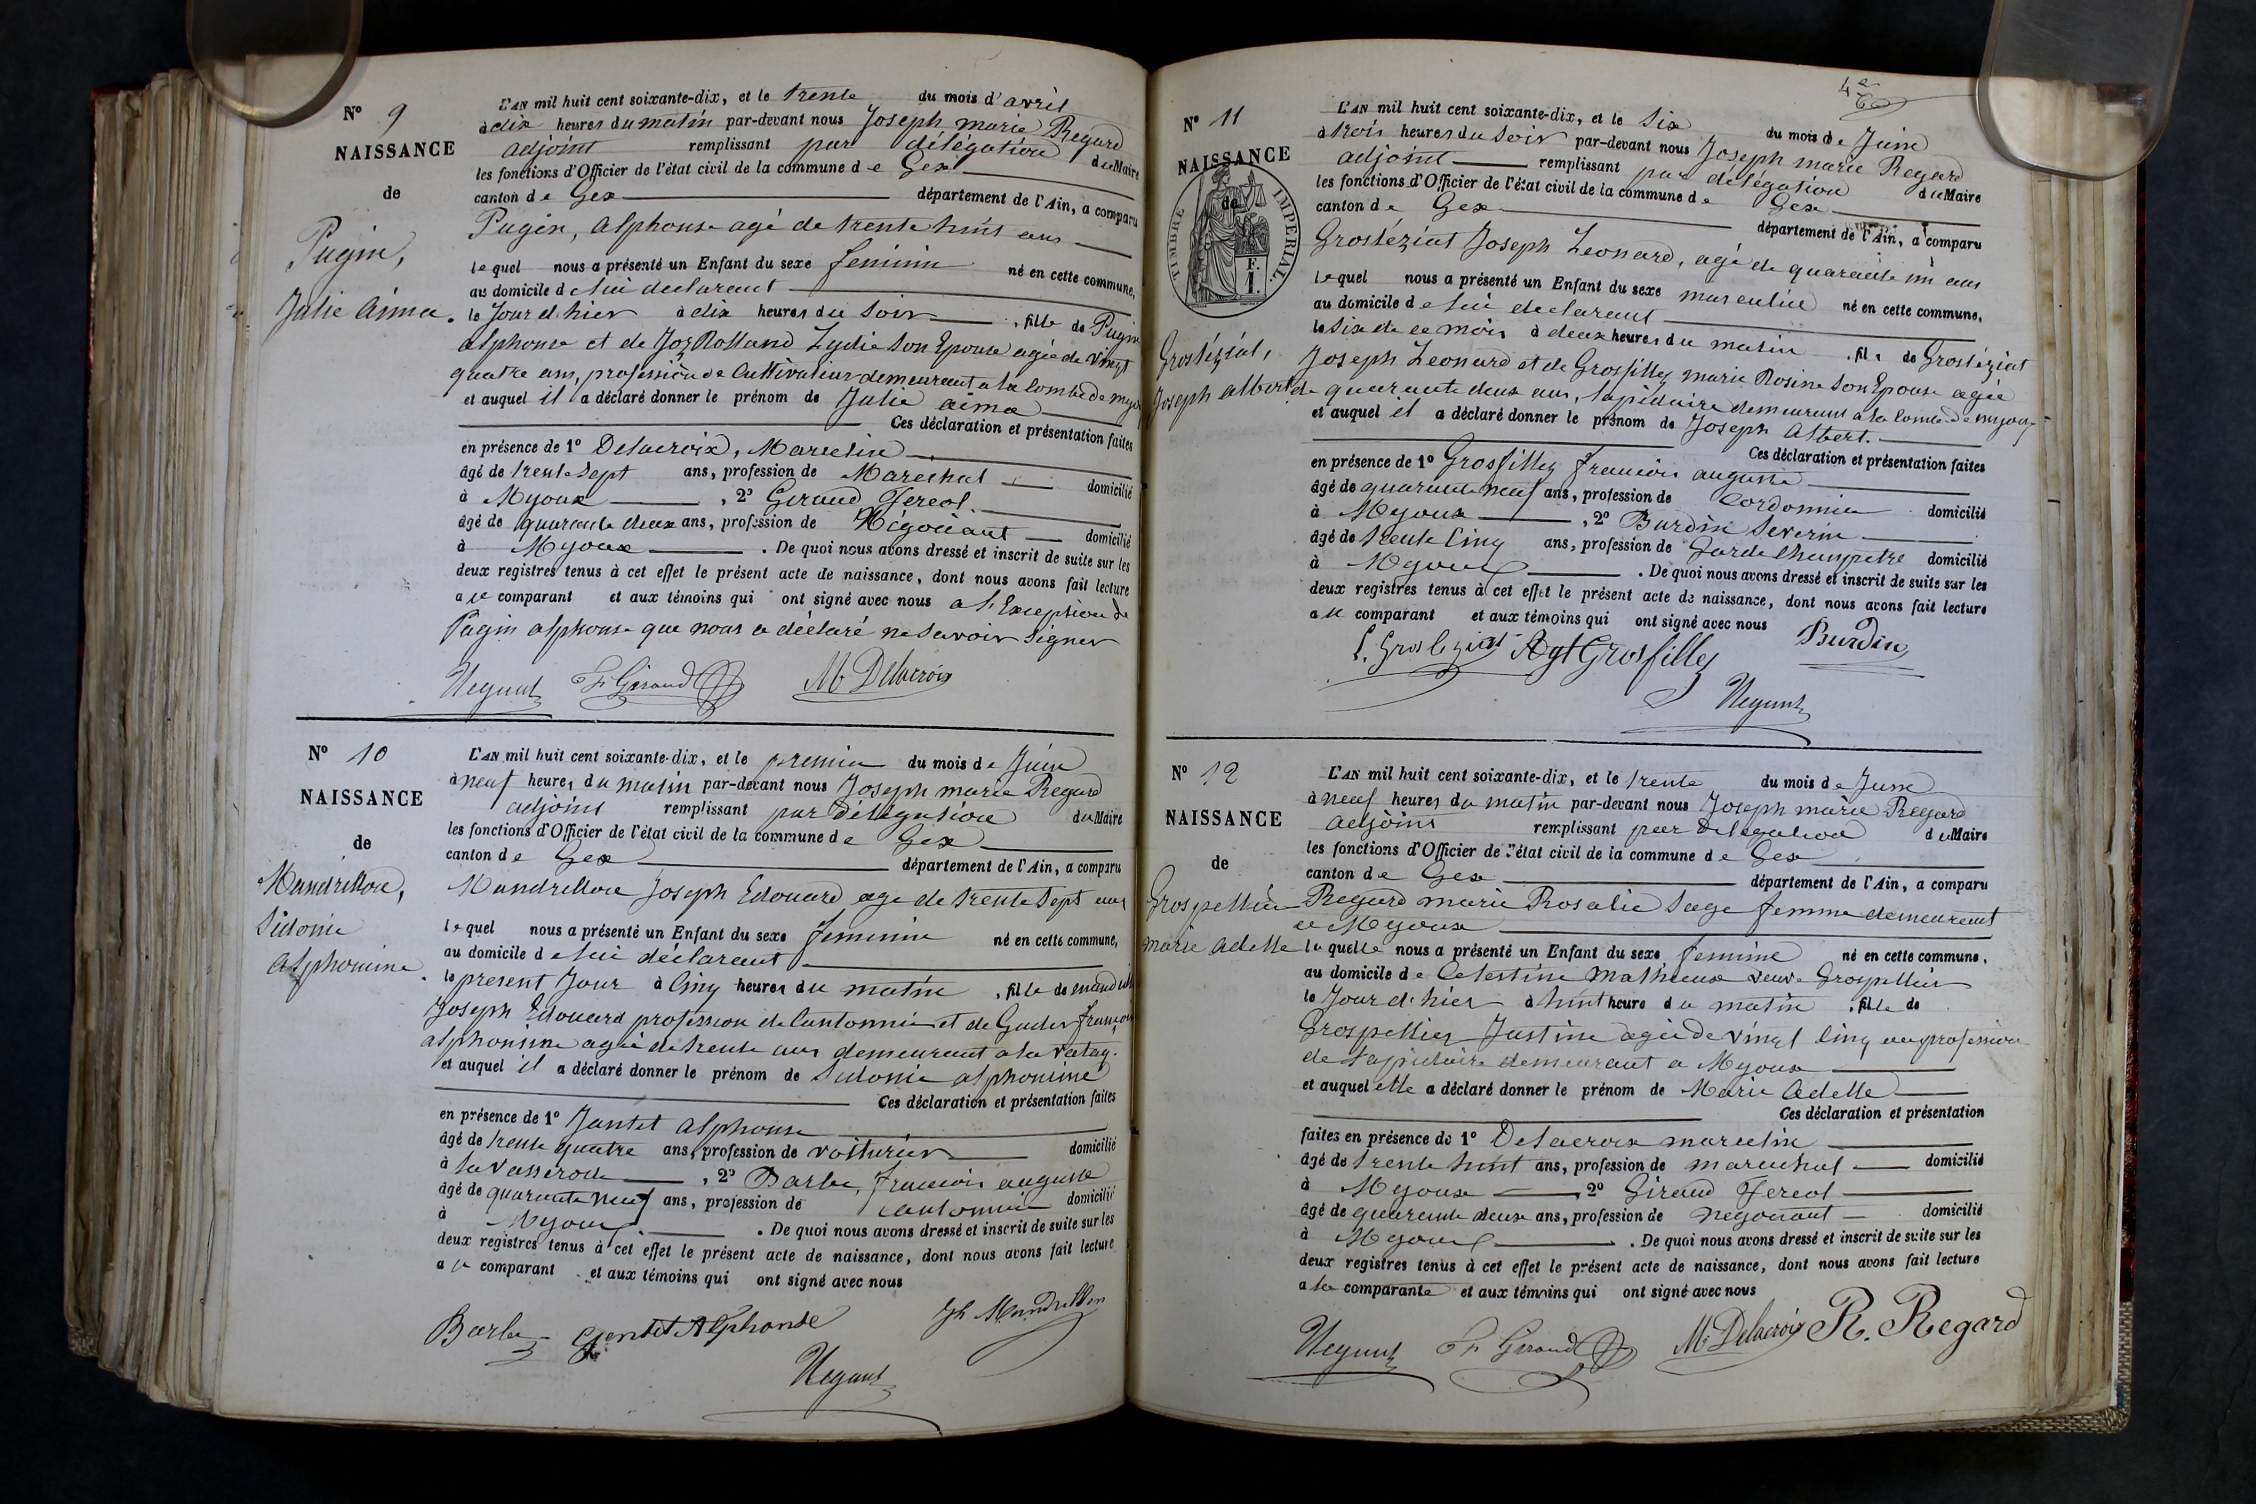 N° 9
NAISSANCE
de
Pugin,
Julie aima.
L'AN mil huit cent soixante-dix, et le trente du mois d'avril
à dix heures du matin par-devant nous Joseph marie Regard
adjoint remplissant par délégation du Maire
les fonctions d'Officier de l'état civil de la commune de Gex
canton de Gex département de l'Ain, a comparu
Pugin, Alphonse agé de trente huit ans
lequel nous a présenté un Enfant du sexe feminin né en cette commune,
au domicile de lui declarant
le Jour d'hier à dix heures du soir, fille de Pugin
alphonse et de Joz Rolland Lydie son Epouse agée de vingt
quatre ans, profession de Cultivateur demeurant a la Combe de myoux
et auquel il a déclaré donner le prénom de Julie aima
Ces déclaration et présentation faites
en présence de 1° Delacroix, Marcelin
âgé de trente sept ans, profession de Marechal domicilié
à Myoux, 2° Giraud Fereol
âgé de quarante deux ans, profession de Négociant domicilié
à Myoux. De quoi nous avons dressé et inscrit de suite sur les
deux registres tenus à cet effet le présent acte de naissance, dont nous avons fait lecture
au comparant et aux témoins qui ont signé avec nous a l'Exception de
Pugin alphonse que nous a déclaré ne savoir signer
F Giraud M Delacroix
N° 10
NAISSANCE
de
Mandrillon,
Sidonie
alphonsine.
L'AN mil huit cent soixante-dix, et le premier du mois de Juin
à neuf heures du matin par-devant nous Joseph marie Regard
adjoint remplissant par délégation du Maire
les fonctions d'Officier de l'état civil de la commune de Gex
canton de Gex département de l'Ain, a comparu
Mandrillon Joseph Edouard age de trente sept ans
lequel nous a présenté un Enfant du sexe feminin né en cette commune,
au domicile de lui déclarant
le présent Jour à cinq heures du matin, fille de mandrillon
Joseph Edouard profession de Cantonnier et de françoise
alphonsine agée de trente ans demeurant a la
et auquel il a déclaré donner le prénom de Sidonie alphonsine
Ces déclaration et présentation faites
en présence de 1° Jantet alphonse
âgé de trente quatre ans, profession de voiturier domicilié
à la Vasserode, 2° Barbe, francois auguste
âgé de quarante neuf ans, profession de cantonnier domicilié
à Myoux. De quoi nous avons dressé et inscrit de suite sur les
deux registres tenus à cet effet le présent acte de naissance, dont nous avons fait lecture
au comparant et aux témoins qui ont signé avec nous
Barbe Alphonse Jh Mandrillon
4e
N° 11
NAISSANCE
de
TIMBRE IMPERIAL
F.
1.
Grostéziat,
Joseph albert
L'AN mil huit cent soixante-dix, et le six du mois de Juin
à trois heures du soir par-devant nous Joseph marie Regard
adjoint remplissant par délégation du Maire
les fonctions d'Officier de l'état civil de la commune de Gex
canton de Gex département de l'Ain, a comparu
Grostéziat Joseph Leonard, agé de quarante un ans
lequel nous a présenté un Enfant du sexe masculin né en cette commune,
au domicile de lui declarant
le six de ce mois à deux heures du matin, fils de Grostéziat
Joseph Leonard et de Grosfilley marie Rosine son Epouse agée
de quarante deux ans, lapidaire demeurant a la Combe de myoux
et auquel il a déclaré donner le prénom de Joseph Albert.
Ces déclaration et présentation faites
en présence de 1° Grosfilley francois auguste
âgé de quarante neuf ans, profession de Cordonnier domicilié
à Myoux, 2° Burdin Severin
âgé de trente cinq ans, profession de Garde Champetre domicilié
à Myoux. De quoi nous avons dressé et inscrit de suite sur les
deux registres tenus à cet effet le présent acte de naissance, dont nous avons fait lecture
au comparant et aux témoins qui ont signé avec nous
Agt Grosfilley Burdin
N° 12
NAISSANCE
de
Grospellier
marie adelle
L'AN mil huit cent soixante-dix, et le trente du mois de Juin
à neuf heures du matin par-devant nous Joseph marie Regard
adjoint remplissant par Delegation du Maire
les fonctions d'Officier de l'état civil de la commune de Gex
canton de Gex département de l'Ain, a comparu
Regard marie Rosalie sage femme demeurant
a Myoux
laquelle nous a présenté un Enfant du sexe feminin né en cette commune,
au domicile de Celestine Mathieux veuve Grospellier
le Jour d'hier à huit heure du matin, fille de
Grospellier Justine agée de vingt cinq ans profession
de lapidaire demeurant a Myoux
et auquel elle a déclaré donner le prénom de Marie Adelle
Ces déclaration et présentation
faites en présence de 1° Delacroix marcelin
âgé de trente huit ans, profession de marechal domicilié
à Myoux, 2° Giraud Fereol
âgé de quarante deux ans, profession de negociant domicilié
à Myoux. De quoi nous avons dressé et inscrit de suite sur les
deux registres tenus à cet effet le présent acte de naissance, dont nous avons fait lecture
a la comparante et aux témoins qui ont signé avec nous
F Giraud M Delacroix R. Regard